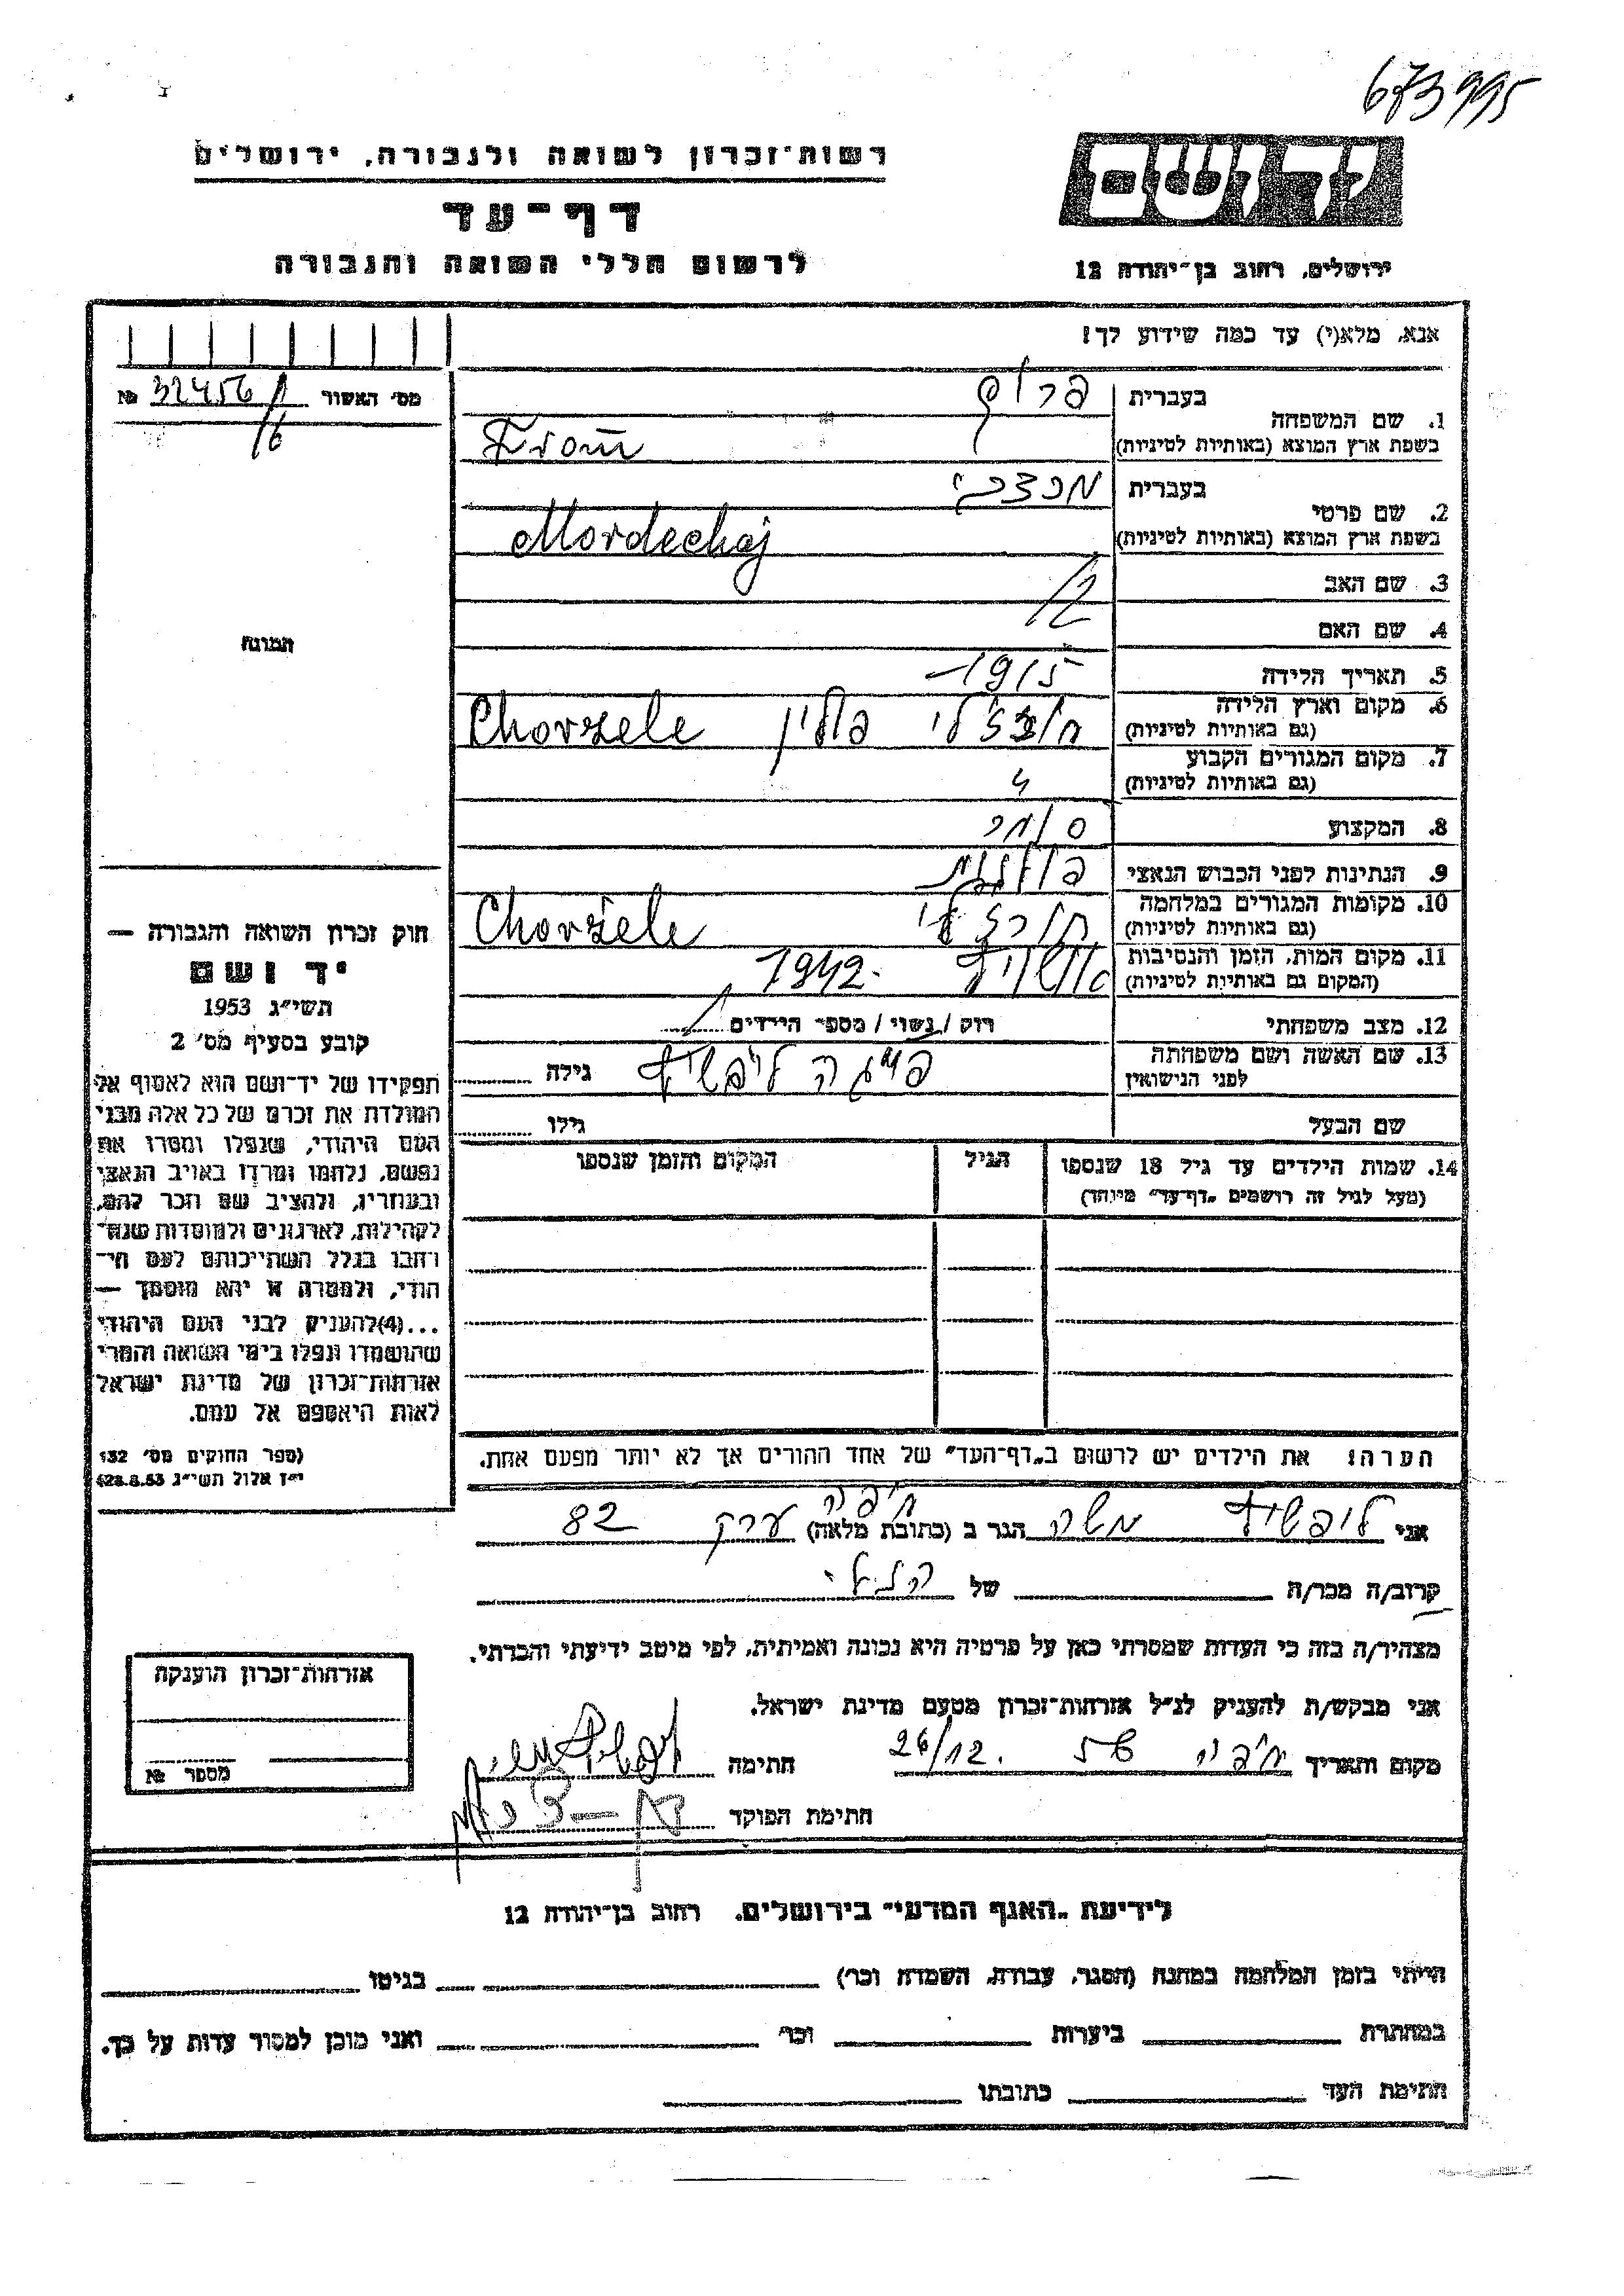 673995
רשות־זכרון לשואה ולגבורה, ירושלים
דף־עד
לרשום חללי השואה והגבורה
יד ושם
ירושלים, רחוב בן־יהודה 12
אנא, מלא(י) עד כמה שידוע לך!
מס׳ האשור № 32456
16
1. שם המשפחה
בעברית פרום
בשפת ארץ המוצא (באותיות לטיניות) From
2. שם פרטי
בעברית מרדכי
בשפת ארץ המוצא (באותיות לטיניות) Mordechaj
3. שם האב
4. שם האם
5. תאריך הלידה 1915
6. מקום וארץ הלידה
(גם באותיות לטיניות) פולין Chorzele
7. מקום המגורים הקבוע
(גם באותיות לטיניות)
8. המקצוע סוחר
9. הנתינות לפני הכבוש הנאצי פולנית
10. מקומות המגורים במלחמה
(גם באותיות לטיניות) חורזלי Chorżele
11. מקום המות, הזמן והנסיבות
(המקום גם באותיות לטיניות) אושויץ 1942
12. מצב משפחתי רוק / נשוי / מספר הילדים
13. שם האשה ושם משפחתה
לפני הנישואין ליפשיץ גילה
שם הבעל גילו
14. שמות הילדים עד גיל 18 שנספו הגיל המקום והזמן שנספו
(מעל לגיל זה רושמים „דף־עד” מיוחד)
הערה: את הילדים יש לרשום ב„דף־העד” של אחד ההורים אך לא יותר מפעם אחת.
התמונה
חוק זכרון השואה והגבורה —
יד ושם
תשי״ג 1953
קובע בסעיף מס׳ 2
תפקידו של יד־ושם הוא לאסוף אל
המולדת את זכרם של כל אלה מבני
העם היהודי, שנפלו ומסרו את
נפשם, נלחמו ומרדו באויב הנאצי
ובעוזריו, ולהציב שם וזכר להם,
לקהילות, לארגונים ולמוסדות שנח־
רבו בגלל השתייכותם לעם הי־
הודי, ולמטרה זו יהא מוסמך —
...(4)להעניק לבני העם היהודי
שהושמדו ונפלו בימי השואה והמרי
אזרחות־זכרון של מדינת ישראל
לאות היאספם אל עמם.
(ספר החוקים מס׳ 132
י״ז אלול תשי״ג 28.8.53)
אני ליפשיץ משה הגר ב (כתובת מלאה) חיפה 82
קרוב/ה מכר/ה של
מצהיר/ה בזה כי העדות שמסרתי כאן על פרטיה היא נכונה ואמיתית, לפי מיטב ידיעתי והכרתי.
אני מבקש/ת להעניק לנ״ל אזרחות־זכרון מטעם מדינת ישראל.
מקום ותאריך חיפה 26/12. חתימה
חתימת הפוקד
אזרחות־זכרון הוענקה
מספר №
לידיעת „האגף המדעי” בירושלים, רחוב בן־יהודה 12
הייתי בזמן המלחמה במחנה (הסגר, עבודה, השמדה וכו׳) בגיטו
במחתרת ביערות וכו׳ ואני מוכן למסור עדות על כך.
חתימת העד כתובתו